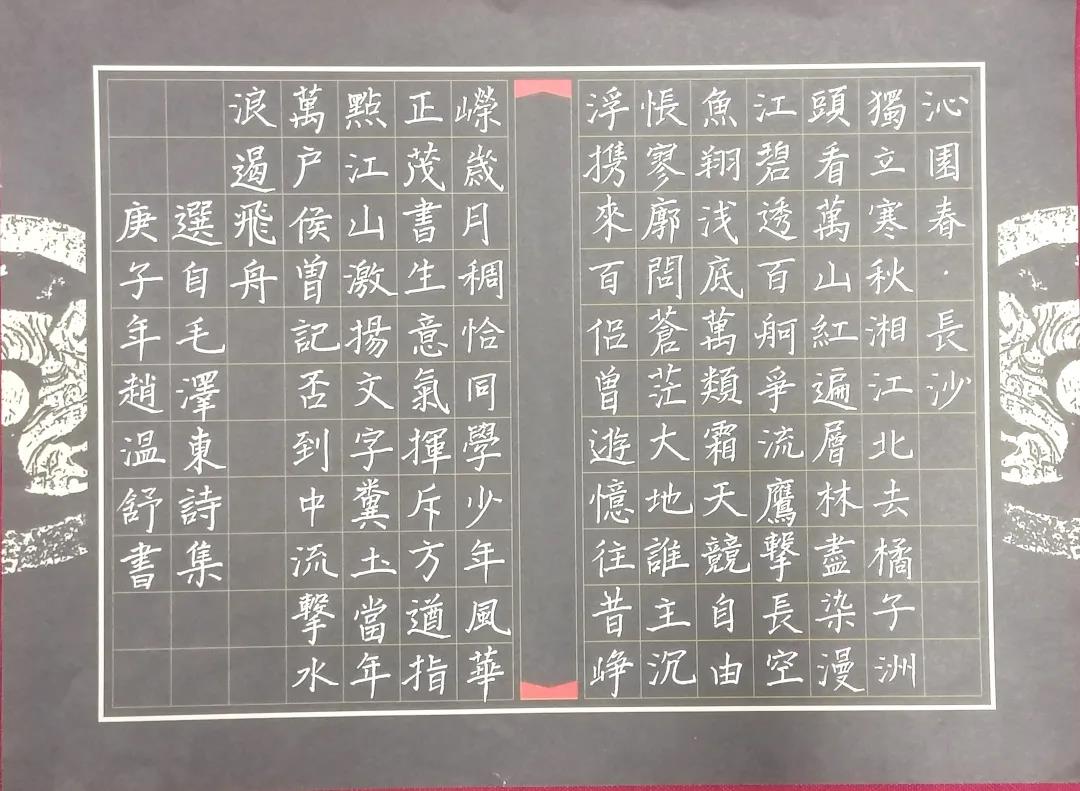 沁園春·長沙
獨立寒秋湘江北去橘子洲
頭看萬山紅遍層林盡染漫
江碧透百舸爭流鷹擊長空
魚翔浅底萬類霜天競自由
悵寥廓問蒼茫大地誰主沉
浮攜來百侶曾遊憶往昔崢
嶸歲月稠恰同學少年風華
正茂書生意氣揮斥方遒指
點江山激揚文字糞土當年
萬户侯曾記否到中流擊水
浪遏飛舟
選自毛澤東詩集
庚子年趙溫舒書